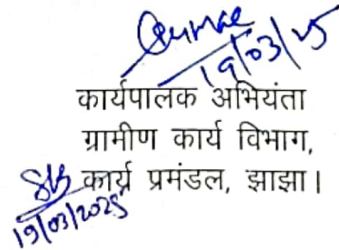 19/03/25
कार्यपालक अभियंता
ग्रामीण कार्य विभाग,
कार्य प्रमंडल, झाझा।
19/03/2025